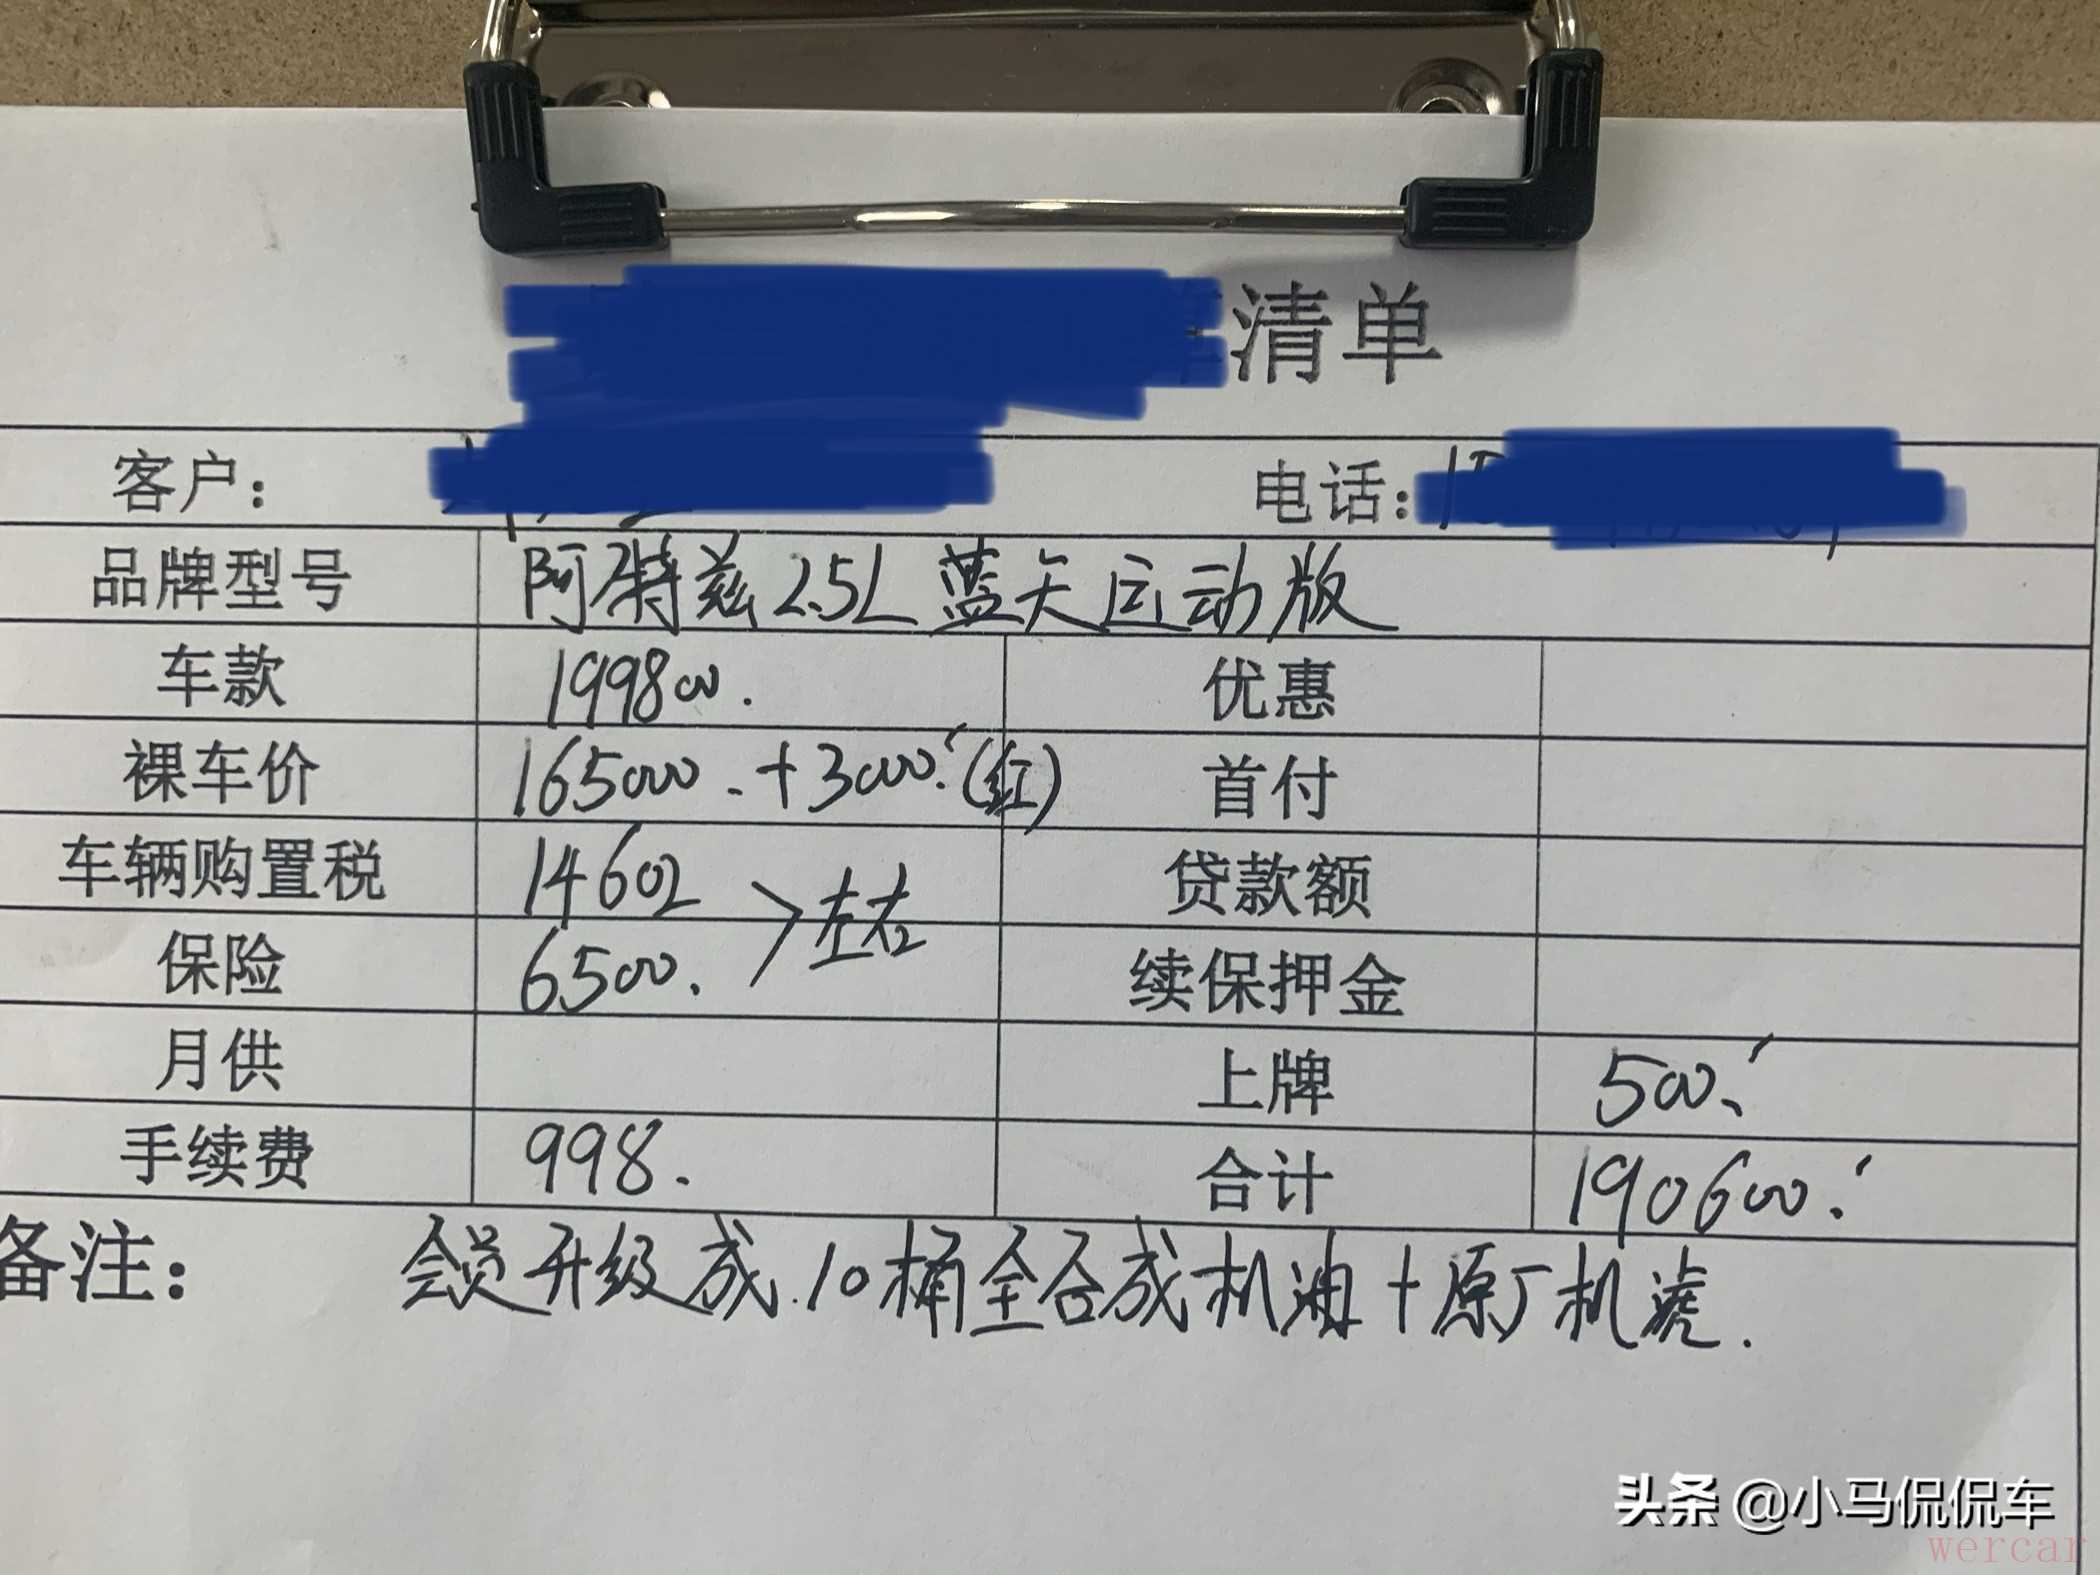 清单
客户：
电话：
品牌型号 阿特兹2.5L蓝天运动版
车款 199800. 优惠
裸车价 165000.+3000.(红) 首付
车辆购置税 14602 >左右 贷款额
保险 6500. 续保押金
月供 上牌 500.
手续费 998. 合计 190600.
备注： 会员升级成.10桶全合成机油+原厂机滤.
头条 @小马侃侃车
wercar